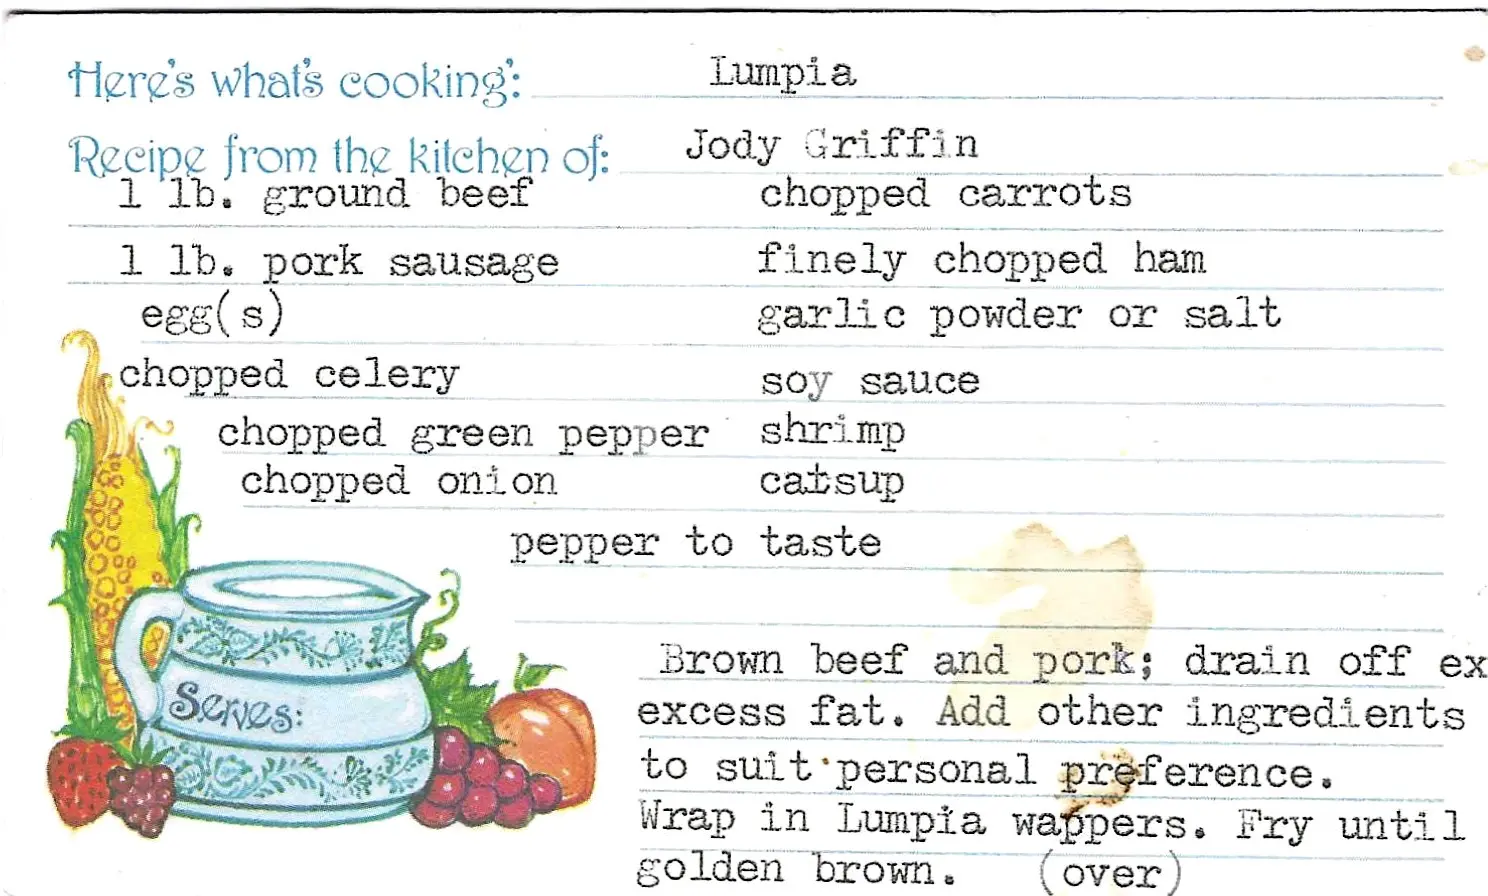 Here's what's cooking: Lumpia
Recipe from the kitchen of: Jody Griffin
1 lb. ground beef chopped carrots
1 lb. pork sausage finely chopped ham
egg(s) garlic powder or salt
chopped celery soy sauce
chopped green pepper shrimp
chopped onion catsup
pepper to taste
Brown beef and pork; drain off ex
excess fat. Add other ingredients
Serves:
to suit personal preference.
Wrap in Lumpia wappers. Fry until
golden brown. (over)